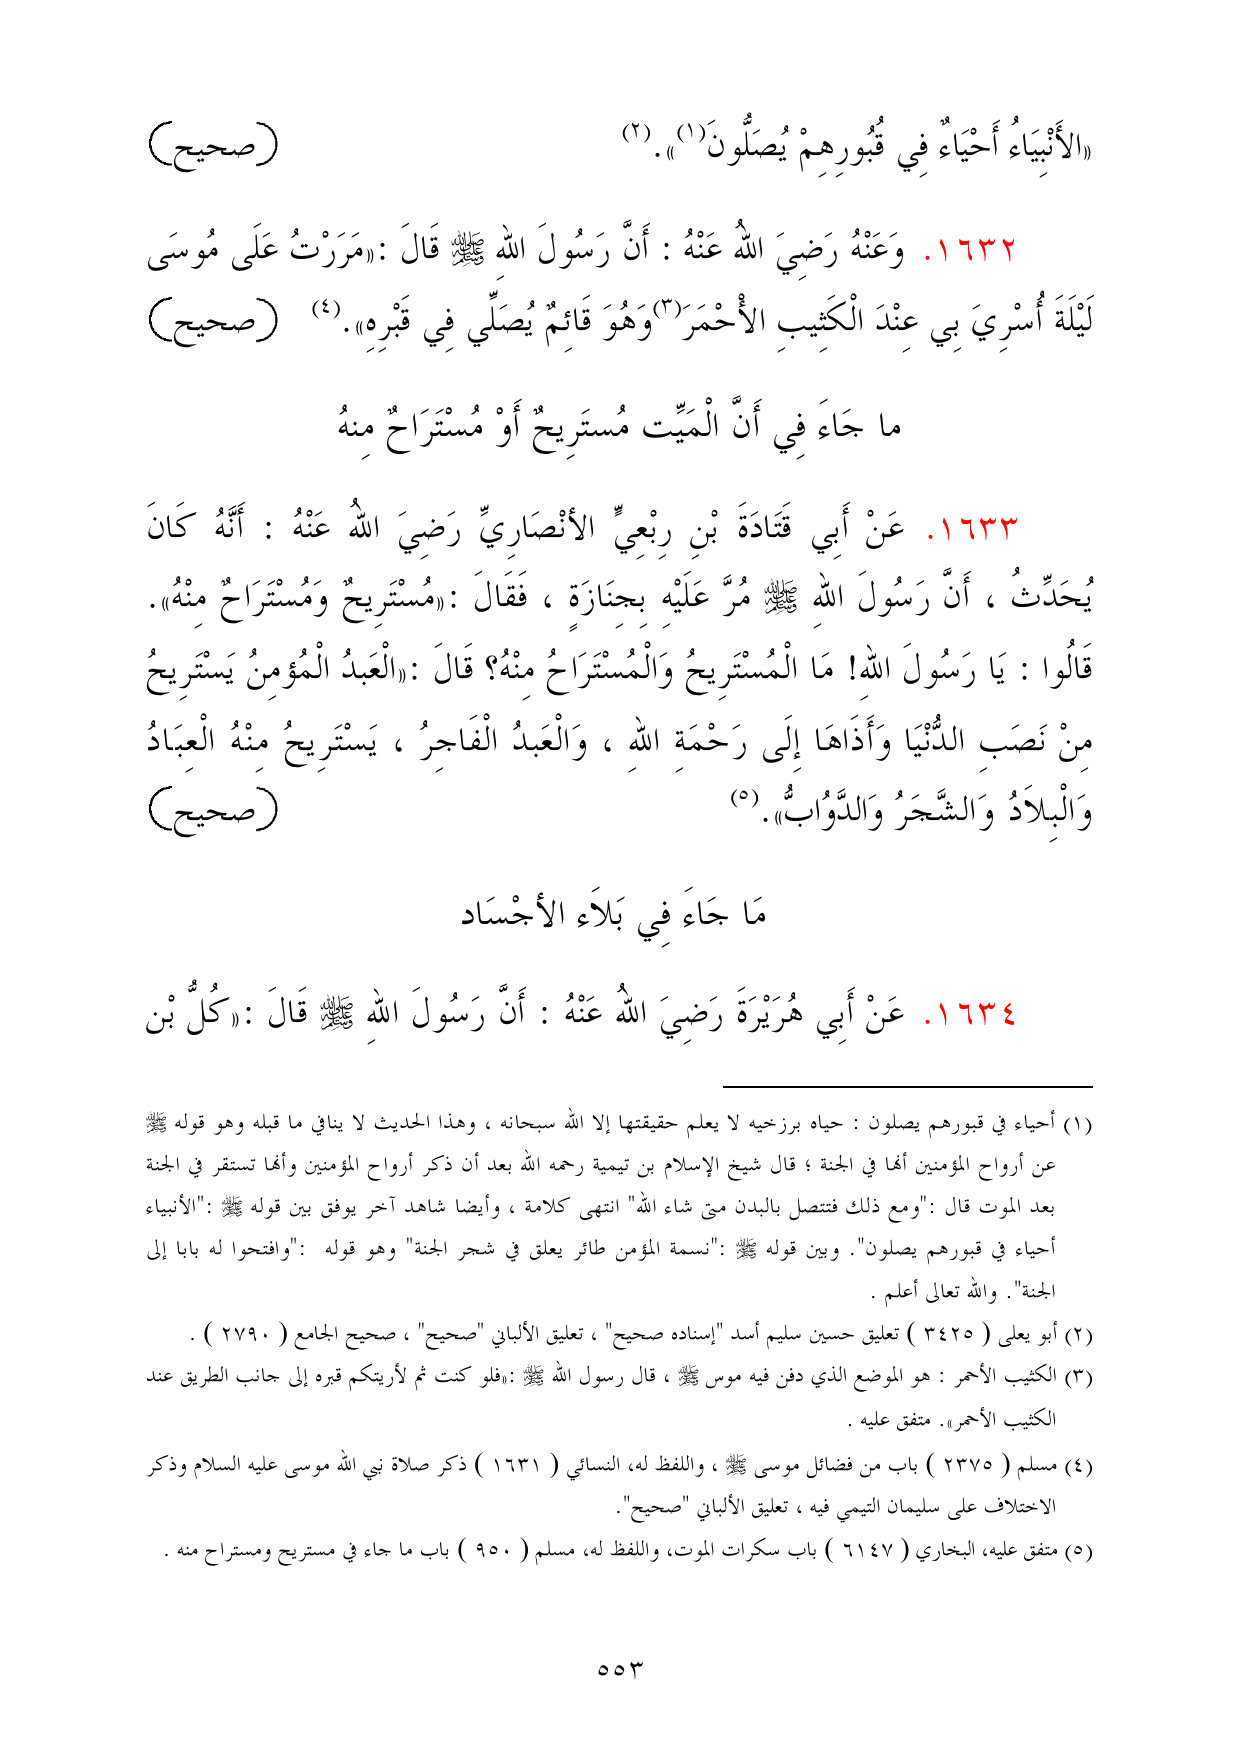 «الأَنْبِيَاءُ أَحْيَاءٌ فِي قُبُورِهِمْ يُصَلُّونَ(١)».(٢) (صحيح)
١٦٣٢. وَعَنْهُ رَضِيَ اللهُ عَنْهُ : أَنَّ رَسُولَ اللهِ ﷺ قَالَ :«مَرَرْتُ عَلَى مُوسَى
لَيْلَةَ أُسْرِيَ بِي عِنْدَ الْكَثِيبِ الأْحْمَرَ(٣)وَهُوَ قَائِمٌ يُصَلِّي فِي قَبْرِهِ».(٤) (صحيح)
ما جَاءَ فِي أَنَّ الْمَيِّت مُستَرِيحٌ أَوْ مُسْتَرَاحٌ مِنهُ
١٦٣٣. عَنْ أَبِي قَتَادَةَ بْنِ رِبْعِيٍّ الأنْصَارِيِّ رَضِيَ اللهُ عَنْهُ : أَنَّهُ كَانَ
يُحَدِّثُ ، أَنَّ رَسُولَ اللهِ ﷺ مُرَّ عَلَيْهِ بِجِنَازَةٍ ، فَقَالَ :«مُسْتَرِيحٌ وَمُسْتَرَاحٌ مِنْهُ».
قَالُوا : يَا رَسُولَ اللهِ! مَا الْمُسْتَرِيحُ وَالْمُسْتَرَاحُ مِنْهُ؟ قَالَ :«الْعَبدُ الْمُؤمِنُ يَسْتَرِيحُ
مِنْ نَصَبِ الدُّنْيَا وَأَذَاهَا إِلَى رَحْمَةِ اللهِ ، وَالْعَبدُ الْفَاجِرُ ، يَسْتَرِيحُ مِنْهُ الْعِبَادُ
وَالْبِلاَدُ وَالشَّجَرُ وَالدَّوَابُّ».(٥) (صحيح)
مَا جَاءَ فِي بَلاَء الأجْسَاد
١٦٣٤. عَنْ أَبِي هُرَيْرَةَ رَضِيَ اللهُ عَنْهُ : أَنَّ رَسُولَ اللهِ ﷺ قَالَ :«كُلُّ بْن
(١) أحياء في قبورهم يصلون : حياه برزخيه لا يعلم حقيقتها إلا الله سبحانه ، وهذا الحديث لا ينافي ما قبله وهو قوله ﷺ
عن أرواح المؤمنين أنها في الجنة ؛ قال شيخ الإسلام بن تيمية رحمه الله بعد أن ذكر أرواح المؤمنين وأنها تستقر في الجنة
بعد الموت قال :"ومع ذلك فتتصل بالبدن متى شاء الله" انتهى كلامة ، وأيضا شاهد آخر يوفق بين قوله ﷺ :"الأنبياء
أحياء في قبورهم يصلون". وبين قوله ﷺ :"نسمة المؤمن طائر يعلق في شجر الجنة" وهو قوله :"وافتحوا له بابا إلى
الجنة". والله تعالى أعلم .
(٢) أبو يعلى ( ٣٤٢٥ ) تعليق حسين سليم أسد "إسناده صحيح" ، تعليق الألباني "صحيح" ، صحيح الجامع ( ٢٧٩٠ ) .
(٣) الكثيب الأحمر : هو الموضع الذي دفن فيه موس ﷺ ، قال رسول الله ﷺ :«فلو كنت ثم لأريتكم قبره إلى جانب الطريق عند
الكثيب الأحمر». متفق عليه .
(٤) مسلم ( ٢٣٧٥ ) باب من فضائل موسى ﷺ ، واللفظ له، النسائي ( ١٦٣١ ) ذكر صلاة نبي الله موسى عليه السلام وذكر
الاختلاف على سليمان التيمي فيه ، تعليق الألباني "صحيح".
(٥) متفق عليه، البخاري ( ٦١٤٧ ) باب سكرات الموت، واللفظ له، مسلم ( ٩٥٠ ) باب ما جاء في مستريح ومستراح منه .
٥٥٣